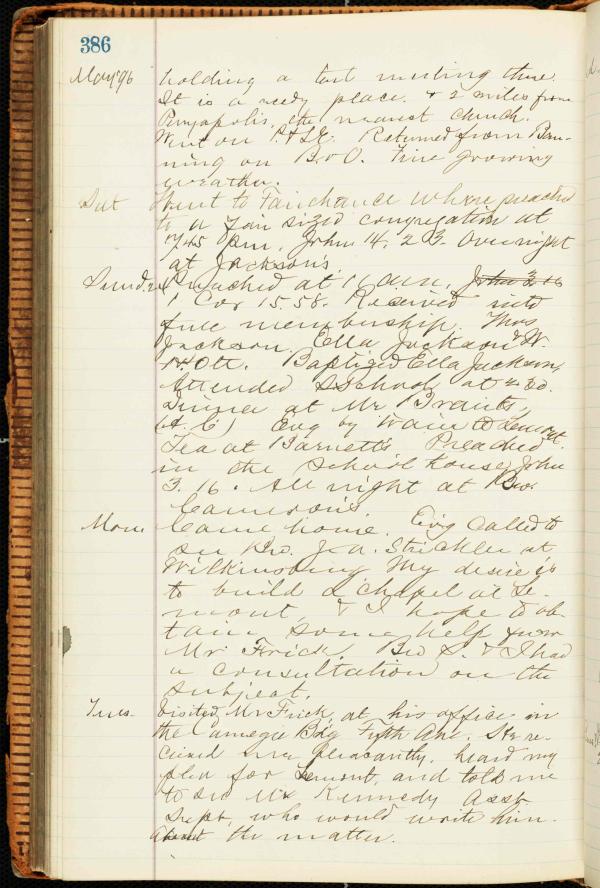 386
May '96 holding a tent meeting there.
It is a needy place. & 2 miles from
Perryopolis, the nearest church.
Went on P. & L.E. Returned from Ban-
ning on B & O. Fine growing
weather.
Sat Went to Fairchance where preached
to a fair sized congregation at
7.45 pm. John 14, 23. Over night
at Jackson's.
Sund. Preached at 11 am, John 3 16
1 Cor 15.58. Received into
full membership. Thos
Jackson. Ella Jackson & W.
H. Ott. Baptized Ella Jackson,
Attended S School at 2.30.
Dinner at Mr
(A. C.) Evg by train to Lemont.
Tea at Barnett's. Preached
in the School house, John
3. 16. All night at Bro.
Cameron's.
Mon. Came home. Evg called to
see Bro. J. A. Strickler at
Wilkinsburg. My desire is
to build a chapel at Le-
mont, & I hope to ob-
tain some help from
Mr Frick. Bro S. & I had
a consultation on the
subject.
Tues. Visited Mr Frick, at his office in
the Carnegie Bdg Fifth Ave. He re-
ceived me pleasantly, heard my
plea for Lemont, and told me
to see Mr Kennedy Asst
Supt, who would write him.
about the matter.